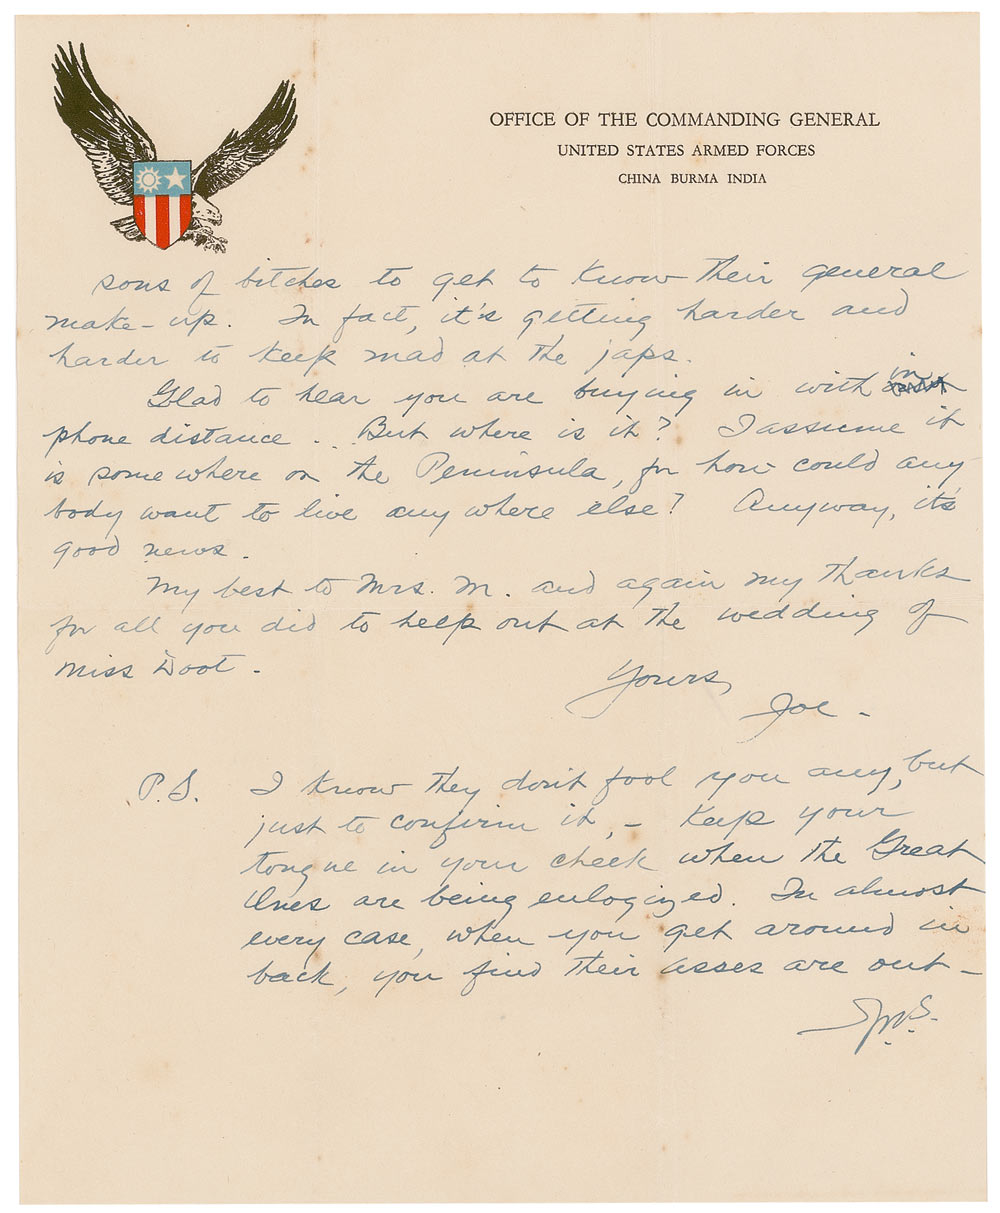 OFFICE OF THE COMMANDING GENERAL
UNITED STATES ARMED FORCES
CHINA BURMA INDIA
sons of bitches to get to know their general
make-up. In fact, it's getting harder and
harder to keep mad at the japs.
Glad to hear you are buying in with in
phone distance.. But where is it? I assume it
is somewhere on the Peninsula, for how could any
body want to live any where else? Anyway, it's
good news.
My best to Mrs. M. and again my thanks
for all you did to help out at the wedding of
Miss Doot.
Yours,
Joe -
P.S. I know they don't fool you any, but
just to confirm it, - Keep your
tongue in your cheek when the Great
Ones are being eulogized. In almost
every case, when you get around in
back, you find their asses are out -
JWS.